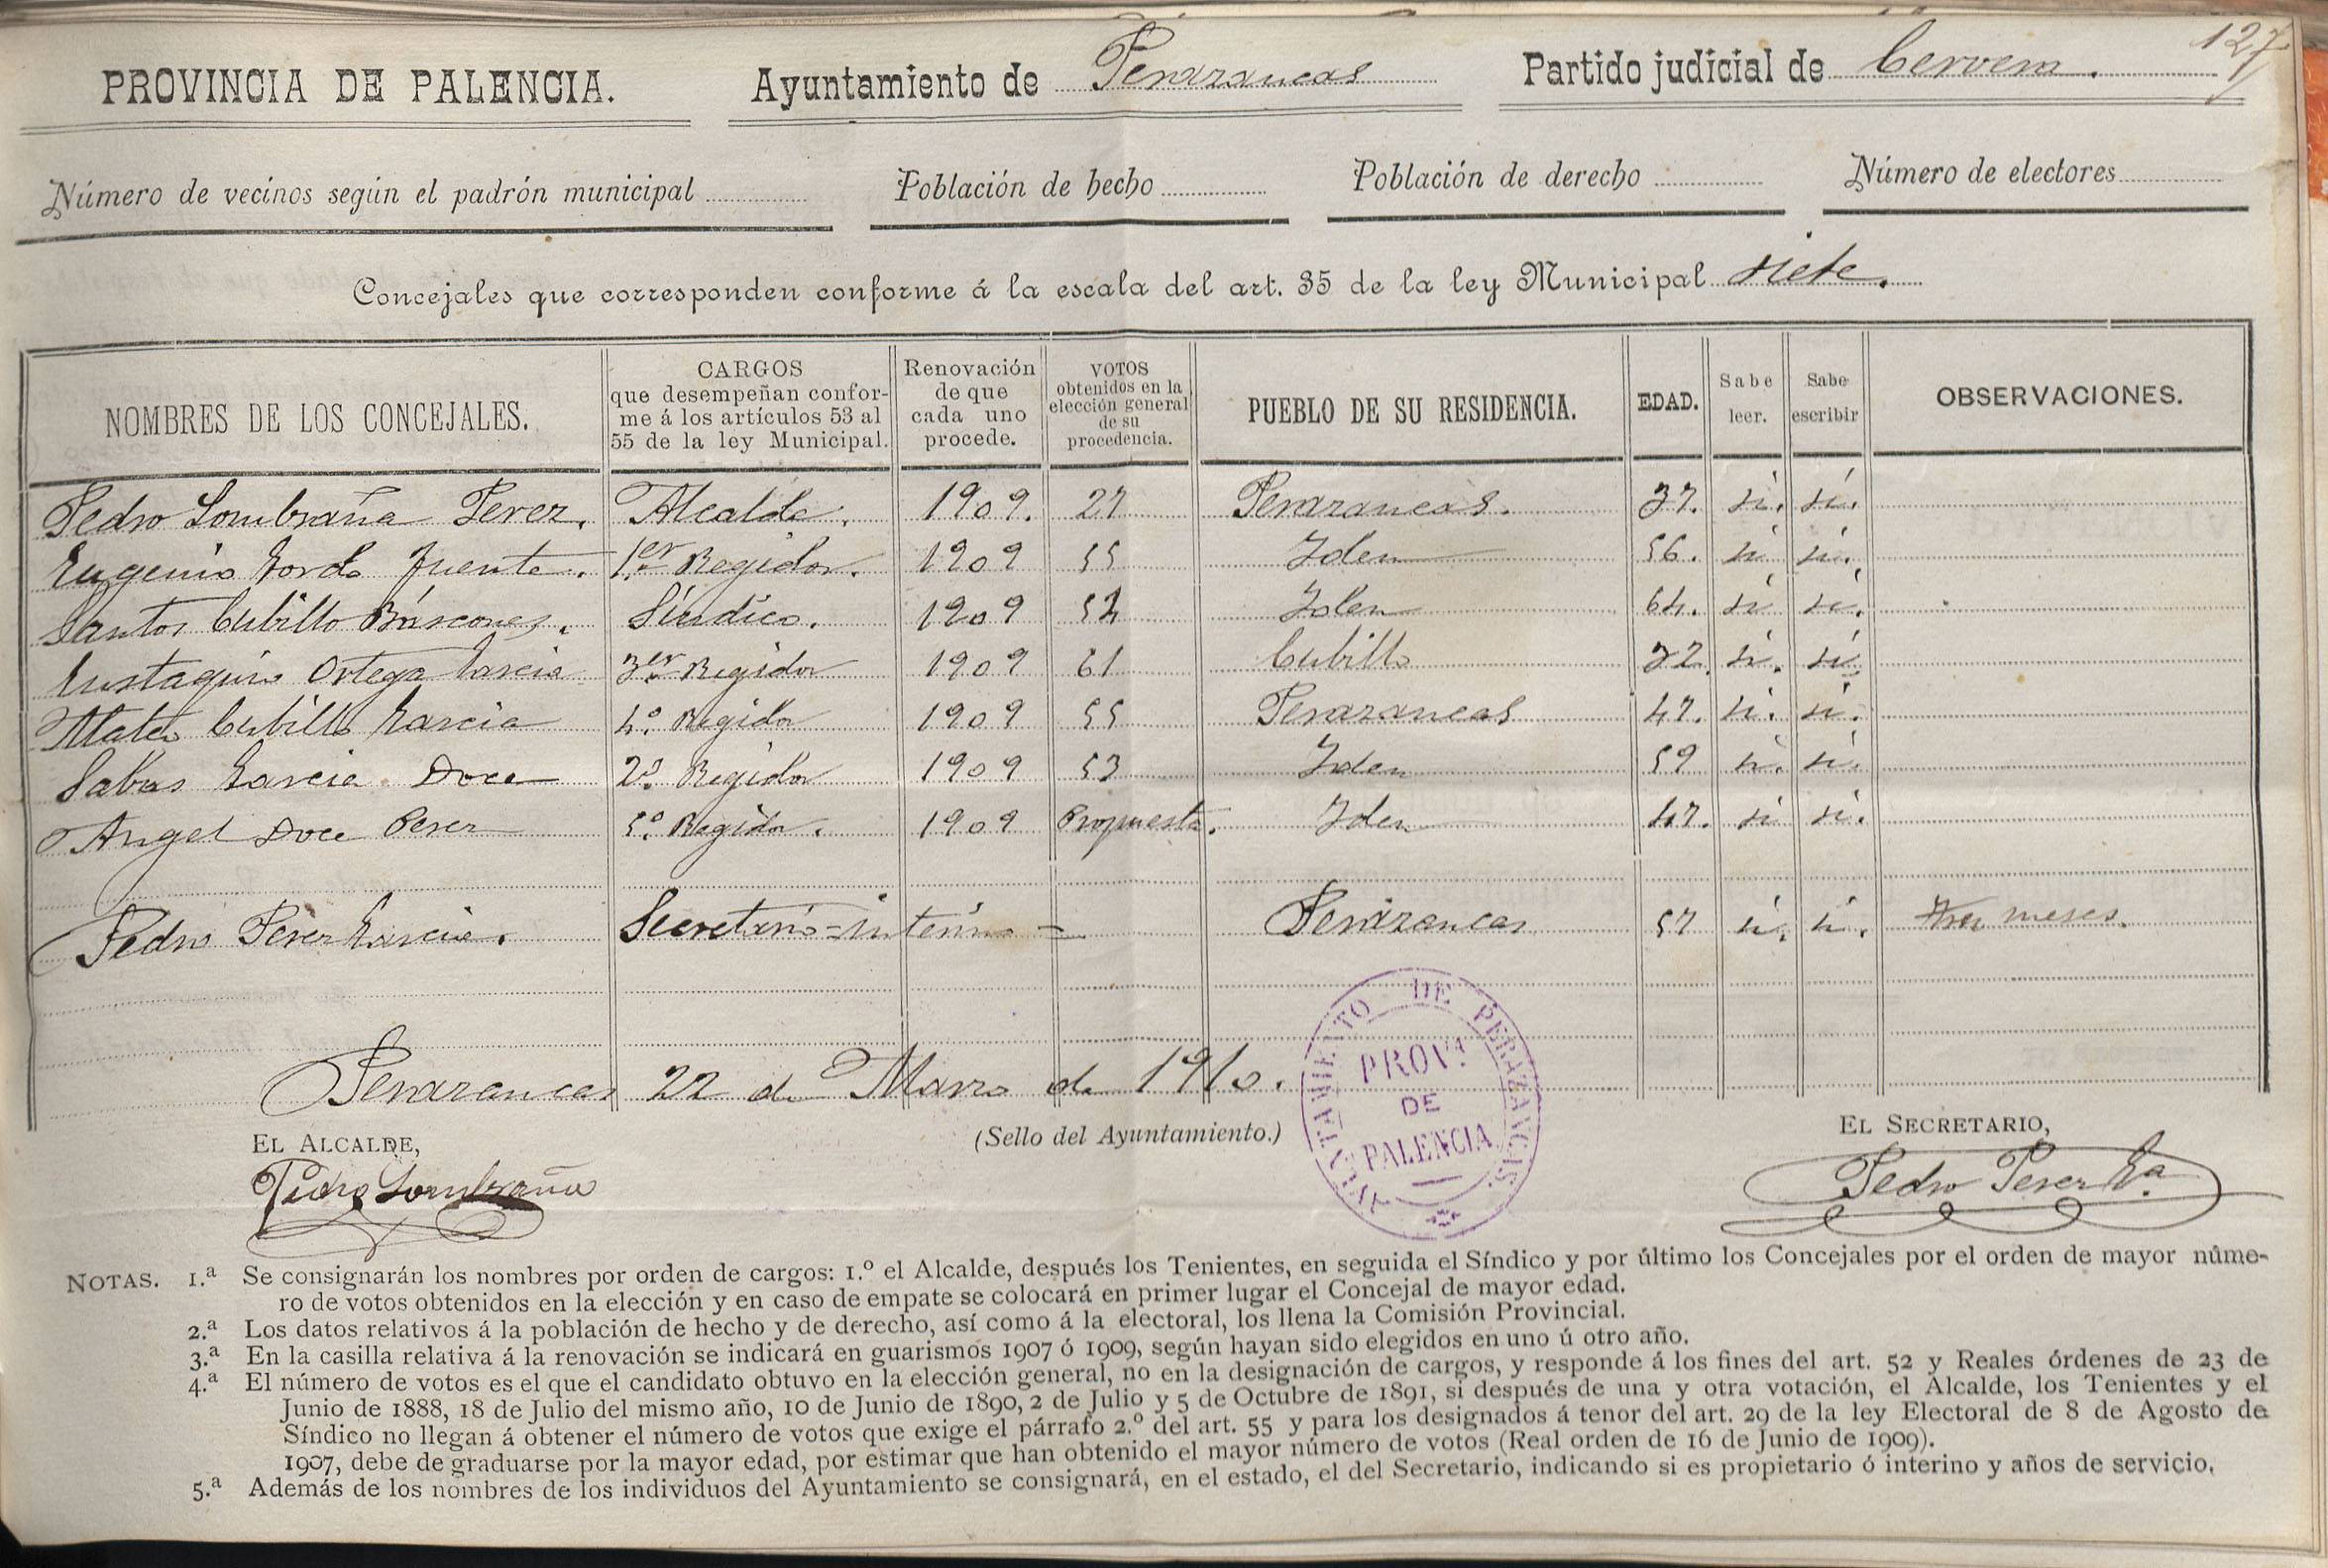 127
PROVINCIA DE PALENCIA. Ayuntamiento de Perazancas Partido judicial de Cervera.
Número de vecinos según el padrón municipal Población de hecho Población de derecho Número de electores
Concejales que corresponden conforme á la escala del art. 35 de la ley Municipal siete.
NOMBRES DE LOS CONCEJALES. CARGOS que desempeñan conforme á los artículos 53 al 55 de la ley Municipal. Renovación de que cada uno procede. VOTOS obtenidos en la elección general de su procedencia. PUEBLO DE SU RESIDENCIA. EDAD. Sabe leer. Sabe escribir OBSERVACIONES.
Pedro Lombraña Perez. Alcalde. 1909. 27 Perazancas. 37. si. si.
Eugenio Gordo Fuente. 1.er Regidor. 1909 55 Iden 56. si si.
Santos Cubillo Báscones. Síndico. 1909 54 Iden 64. si si.
Eustaquio Ortega Garcia 3er Regidor 1909 61 Cubillo 32. si. si
Mateo Cubillo Garcia 4.º Regidor 1909 55 Perazancas 47. si. si.
Sabas Garcia Doce 2.º Regidor 1909 53 Iden 59 si. si.
Angel Doce Perez 5.º Regidor. 1909 Propuesta. Iden 47. si si.
Pedro Perez Garcia. Secretario=interino= Perazancas 57 si. si. tres meses.
Perazancas 22 de Marzo de 1910.
EL ALCALDE, (Sello del Ayuntamiento.) EL SECRETARIO,
Pedro Lombraña
AYUNTAMIENTO DE PERAZANCAS.
PROV.ª
DE
PALENCIA
Pedro Perez G.ª
NOTAS. 1.ª Se consignarán los nombres por orden de cargos: 1.º el Alcalde, después los Tenientes, en seguida el Síndico y por último los Concejales por el orden de mayor núme-
ro de votos obtenidos en la elección y en caso de empate se colocará en primer lugar el Concejal de mayor edad.
2.ª Los datos relativos á la población de hecho y de derecho, así como á la electoral, los llena la Comisión Provincial.
3.ª En la casilla relativa á la renovación se indicará en guarismos 1907 ó 1909, según hayan sido elegidos en uno ú otro año.
4.ª El número de votos es el que el candidato obtuvo en la elección general, no en la designación de cargos, y responde á los fines del art. 52 y Reales órdenes de 23 de
Junio de 1888, 18 de Julio del mismo año, 10 de Junio de 1890, 2 de Julio y 5 de Octubre de 1891, si después de una y otra votación, el Alcalde, los Tenientes y el
Síndico no llegan á obtener el número de votos que exige el párrafo 2.º del art. 55 y para los designados á tenor del art. 29 de la ley Electoral de 8 de Agosto de
1907, debe de graduarse por la mayor edad, por estimar que han obtenido el mayor número de votos (Real orden de 16 de Junio de 1909).
5.ª Además de los nombres de los individuos del Ayuntamiento se consignará, en el estado, el del Secretario, indicando si es propietario ó interino y años de servicio.